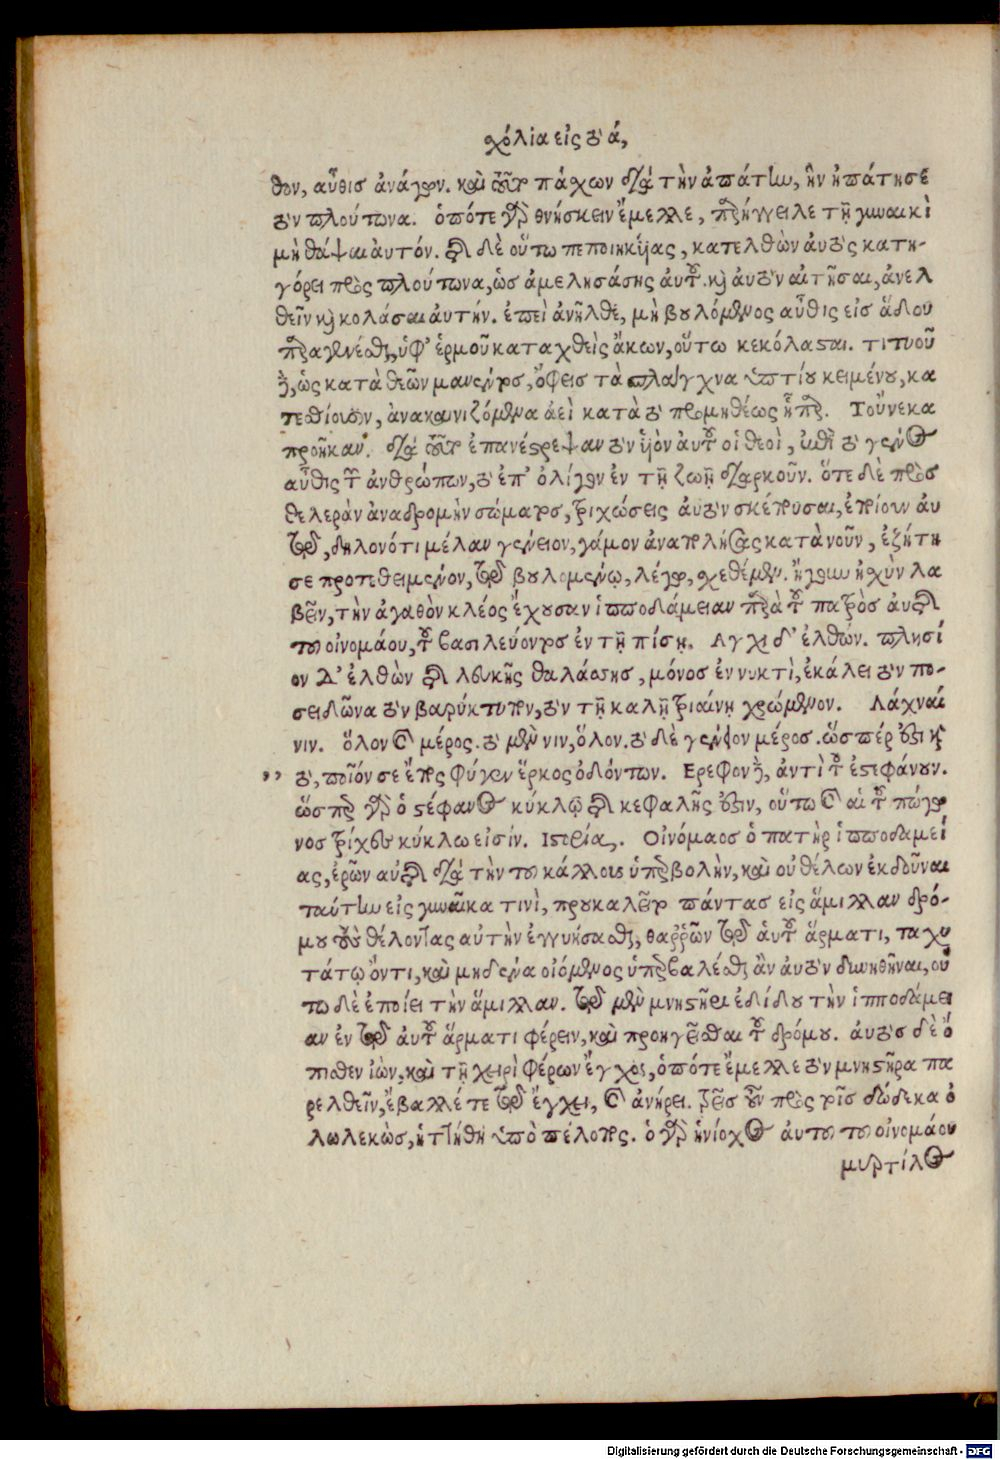 χόλια εἰς τὸ ά,
θον, αὖθισ ἀνάγων. καὶ οὗτος πάσχων διὰ τὴν ἀπάτην, ἣν ἠπάτησε
τὸν πλούτωνα. ὁπότε γὰρ θνήσκειν ἔμελλε, παρήγγειλε τῇ γυναικὶ
μὴ θάψαι αὐτόν. τῆς δὲ οὕτω πεποιηκυίας, κατελθὼν αὐτὸς κατη-
γόρει πρὸς πλούτωνα, ὡς ἀμελησάσης αὐτοῦ. καὶ αὐτὸν αἰτῆσαι, ἀνελ
θεῖν καὶ κολάσαι αὐτήν. ἐπεὶ ἀνῆλθε, μὴ βουλόμενος αὖθις εἰσ ἅδου
παραγενέσθαι, ὑφ' ἑρμοῦ καταχθεὶς ἄκων, οὕτω κεκόλασται. τιτυοῦ
δὲ, ὡς κατὰ θεῶν μανέντος, ὄφεισ τὰ σπλάγχνα ὑπτίου κειμένου, κα
τεσθίουσιν, ἀνακαινιζόμενα ἀεὶ κατὰ τὸ προμηθέως ἧπαρ. Τοὔνεκα
προῆκαν. διὰ τοῦτο ἐπανέστρεψαν τὸν υἱὸν αὐτοῦ οἱ θεοὶ, ἐπὶ τὸ γένος
αὖθις τῶν ἀνθρώπων, τὸ ἐπ' ὀλίγον ἐν τῇ ζωῇ διαρκοῦν. ὅτε δὲ πρὸσ
θελερὰν ἀναδρομὴν σώματος, τριχώσεις αὐτὸν σκέπουσαι, ἐποίουν αὐ
τῷ, δηλονότι μέλαν γένειον, γάμον ἀναπλήσας κατὰ νοῦν, ἐζήτη
σε προτεθειμένον, τῷ βουλομένῳ, λέγω, σχεθέμεν. ἤγουν ἠχὺν λα
βεῖν, τὴν ἀγαθὸν κλέος ἔχουσαν ἱπποδάμειαν παρὰ τοῦ πατρὸς αὐτῆς
τοῦ οἰνομάου, τοῦ βασιλεύοντος ἐν τῇ πίσῃ. Αγχι δ' ἐλθών. πλησί
ον δ' ἐλθὼν τῆς λευκῆς θαλάσσης, μόνοσ ἐν νυκτὶ, ἐκάλει τὸν πο-
σειδῶνα τὸν βαρύκτυπον, τὸν τῇ καλῇ τριαίνῃ χρώμενον. Λάχναί
νιν. ὅλον καὶ μέρος. τὸ μὲν νιν, ὅλον. τὸ δὲ γένειον μέρος. ὥσπέρ ἐστι καὶ
τὸ, ποῖόν σε ἔπος φύγεν ἕρκος ὀδόντων. Ερεφον δὲ, ἀντὶ τοῦ ἐστεφάνουν.
ὥσπερ γὰρ ὁ στέφανος κύκλῳ τῆς κεφαλῆς ἐστιν, οὕτω καὶ αἱ τοῦ πώγω
νοσ τρίχες κύκλω εἰσίν. Ιστορία. Οἰνόμαοσ ὁ πατὴρ ἱπποδαμεί
ας, ἐρῶν αὐτῆς διὰ τὴν τοῦ κάλλους ὑπερβολὴν, καὶ οὐ θέλων ἐκδοῦναι
ταύτην εἰς γυναῖκα τινὶ, προυκαλεῖτο πάντασ εἰς ἅμιλλαν δρό-
μου τοὺς θέλοντας αὐτὴν ἐγγυήσασθαι, θαῤῥῶν τῷ αὑτοῦ ἅρματι, ταχυ
τάτῳ ὄντι, καὶ μηδένα οἰόμενος ὑπερβαλέσθαι ἂν αὐτὸν δυνηθῆναι, οὕ
τω δὲ ἐποίει τὴν ἅμιλλαν. τῷ μὲν μνηστῆρι ἐδίδου τὴν ἱπποδάμει
αν ἐν τῷ αὐτοῦ ἅρματι φέρειν, καὶ προηγεῖσθαι τοῦ δρόμου. αὐτὸσ δὲ ὄ
πισθεν ἰὼν, καὶ τῇ χειρὶ φέρων ἔγχος, ὁπότε ἔμελλε τὸν μνηστῆρα πα
ρελθεῖν, ἔβαλλέ τε τῷ ἔγχει, καὶ ἀνῄρει. τρεῖσ οὖν πρὸς τοῖς δώδεκα ὀ
λωλεκὼσ, ἡττήθη ὑπὸ πέλοπος. ὁ γὰρ ἡνίοχος αὐτοῦ τοῦ οἰνομάου
μυρτίλος
Digitalisierung gefördert durch die Deutsche Forschungsgemeinschaft - DFG